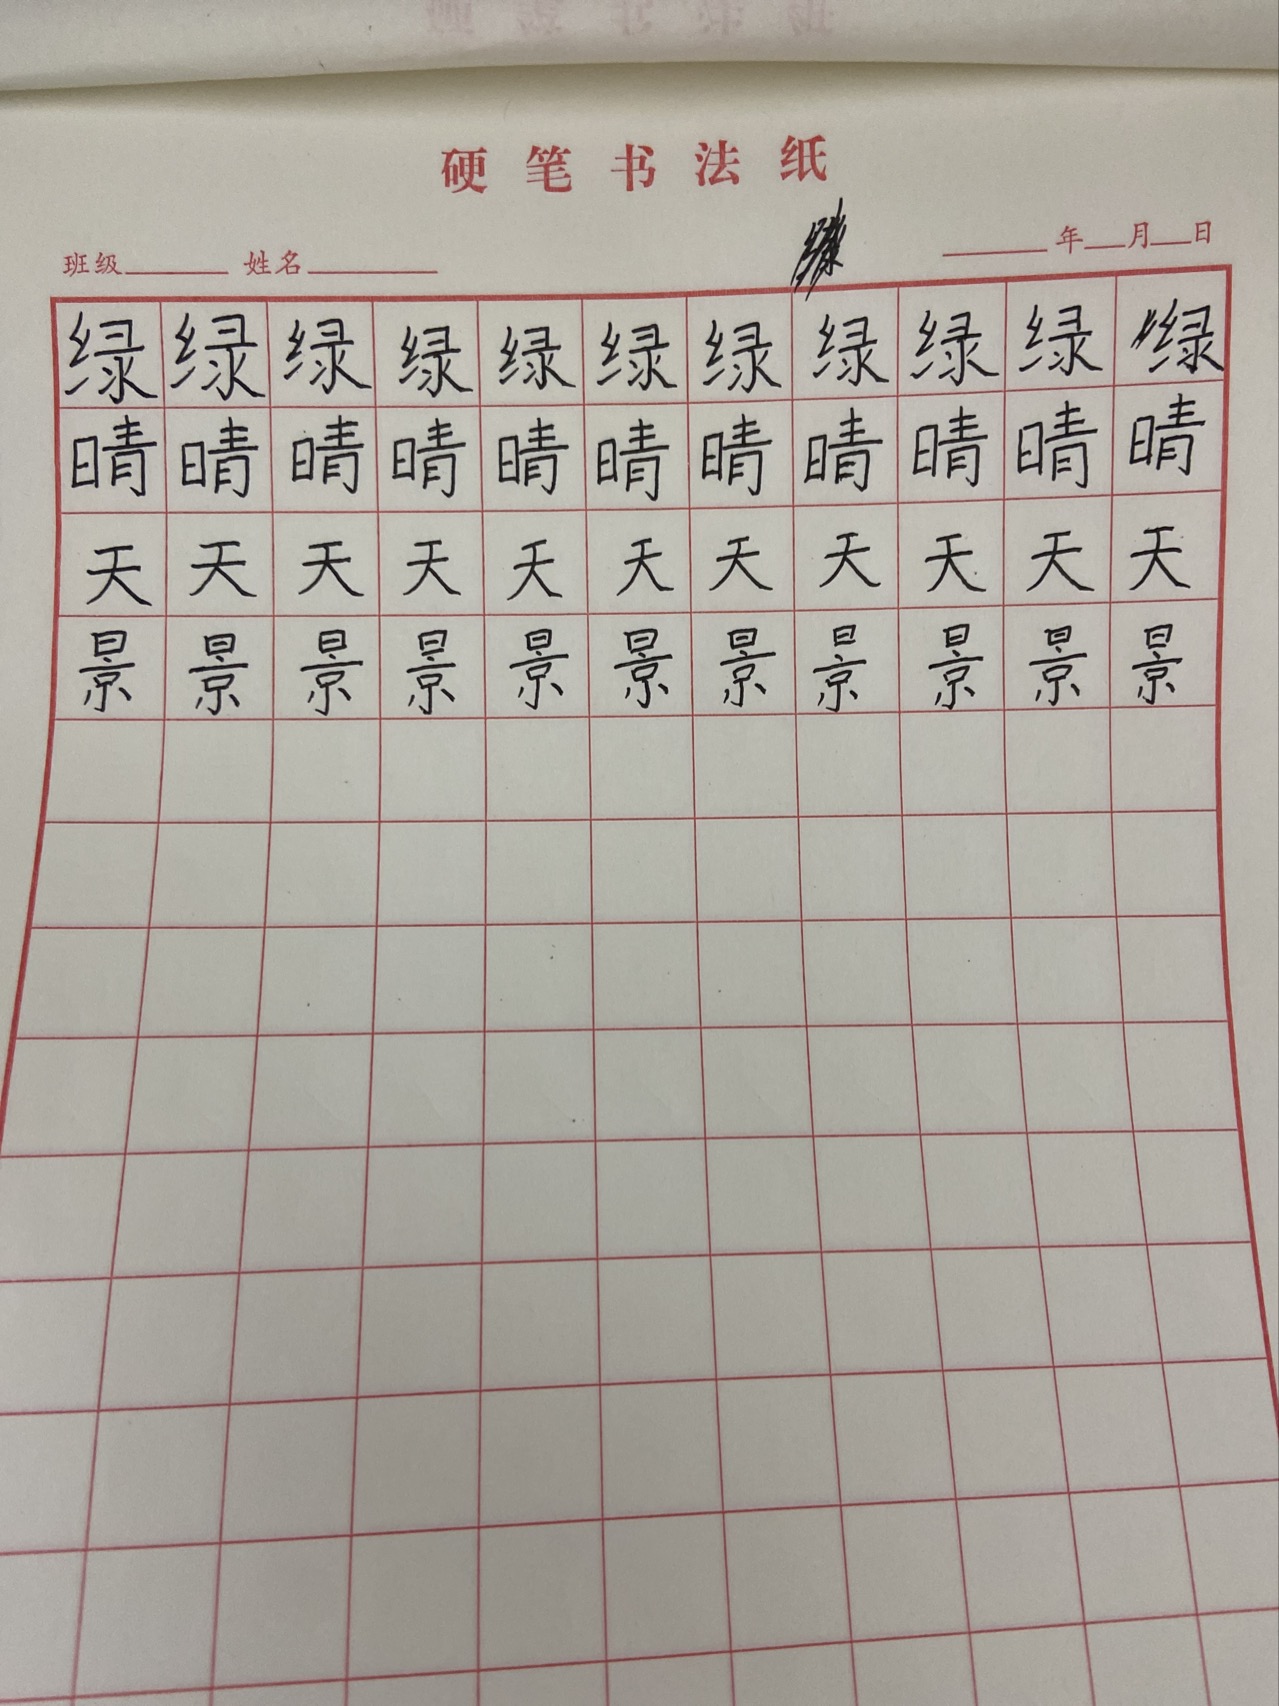 硬笔书法纸
班级 姓名 年 月 日
绿绿绿绿绿绿绿绿绿绿绿
晴晴晴晴晴晴晴晴晴晴晴
天天天天天天天天天天天
景景景景景景景景景景景